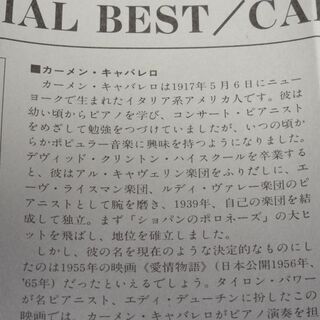 IAL BEST/CA
■カーメン・キャバレロ
カーメン・キャバレロは1917年5月6日にニュー
ヨークで生まれたイタリア系アメリカ人です。彼は
幼い頃からピアノを学び、コンサート・ピアニスト
をめざして勉強をつづけていましたが、いつの頃か
らかポピュラー音楽に興味を持つようになりました。
デヴィッド・クリントン・ハイスクールを卒業する
と、彼はアル・キャヴェリン楽団をふりだしに、エ
ーヴ・ライスマン楽団、ルディ・ヴァレー楽団のピ
アニストとして腕を磨き、1939年、自己の楽団を結
成して独立。まず「ショパンのポロネーズ」の大ヒ
ットを飛ばし、地位を確立しました。
しかし、彼の名を現在のような決定的なものにし
たのは1955年の映画《愛情物語》(日本公開1956年、
'65年)だったといえるでしょう。タイロン・パワー
が名ピアニスト、エディ・デューチンに扮したこの
映画では、カーメン・キャバレロがピアノ演奏を担